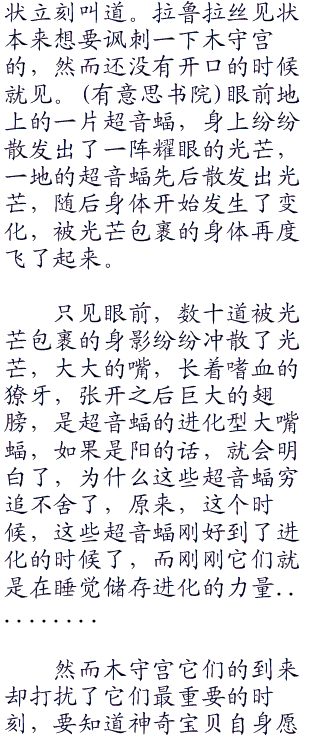 状立刻叫道。拉鲁拉丝见状
本来想要讽刺一下木守宫
的，然而还没有开口的时候
就见。(有意思书院)眼前地
上的一片超音蝠，身上纷纷
散发出了一阵耀眼的光芒，
一地的超音蝠先后散发出光
芒，随后身体开始发生了变
化，被光芒包裹的身体再度
飞了起来。
只见眼前，数十道被光
芒包裹的身影纷纷冲散了光
芒，大大的嘴，长着嗜血的
獠牙，张开之后巨大的翅
膀，是超音蝠的进化型大嘴
蝠，如果是阳的话，就会明
白了，为什么这些超音蝠穷
追不舍了，原来，这个时
候，这些超音蝠刚好到了进
化的时候了，而刚刚它们就
是在睡觉储存进化的力量..
........
然而木守宫它们的到来
却打扰了它们最重要的时
刻，要知道神奇宝贝自身愿